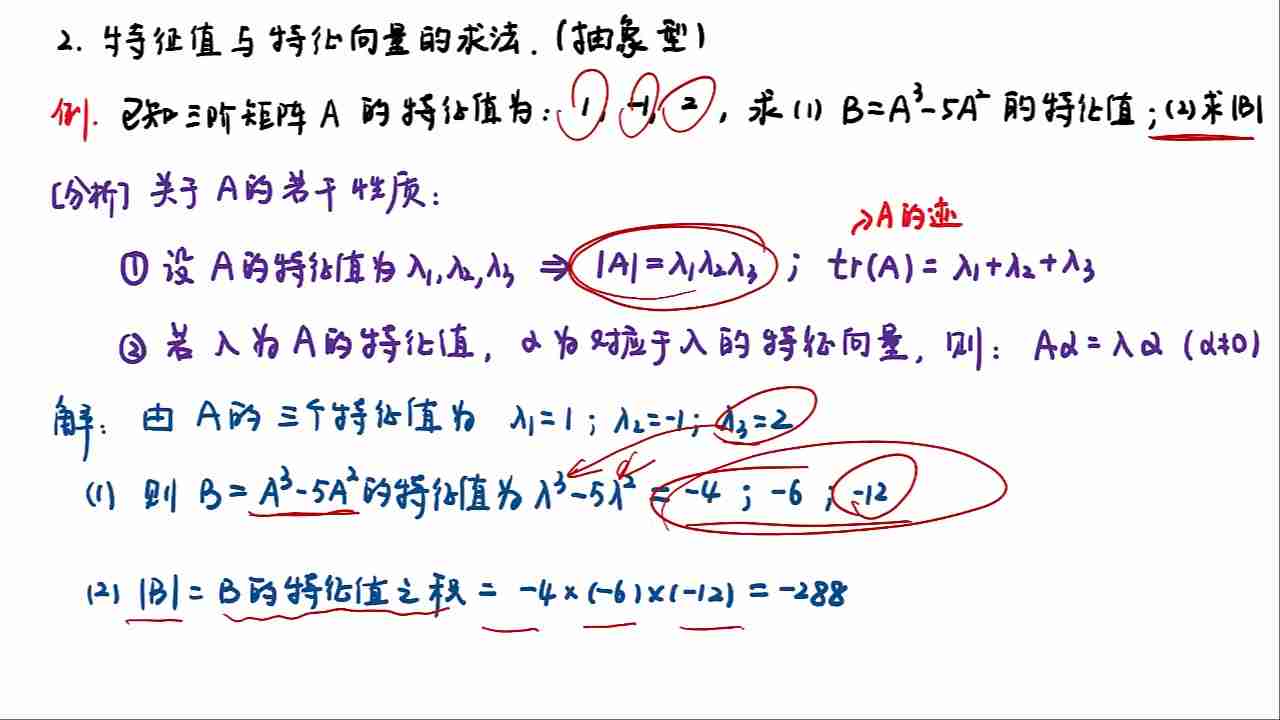 2. 特征值与特征向量的求法.(抽象型)
例. 已知三阶矩阵 A 的特征值为: 1, -1, 2, 求 (1) B=A³-5A² 的特征值;(2)求|B|
[分析] 关于 A的若干性质:
→A的迹
① 设 A的特征值为λ₁,λ₂,λ₃ ⇒ |A|=λ₁λ₂λ₃; tr(A)=λ₁+λ₂+λ₃
② 若 λ 为 A的特征值, α 为对应于 λ 的特征向量, 则: Aα=λα (α≠0)
解: 由 A的三个特征值为 λ₁=1; λ₂=-1; λ₃=2
(1) 则 B=A³-5A²的特征值为 λ³-5λ² = -4; -6; -12
(2) |B| = B的特征值之积 = -4×(-6)×(-12) = -288